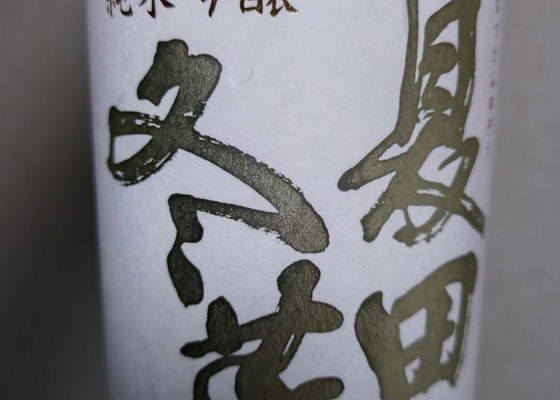 純米吟醸
夏田
冬蔵